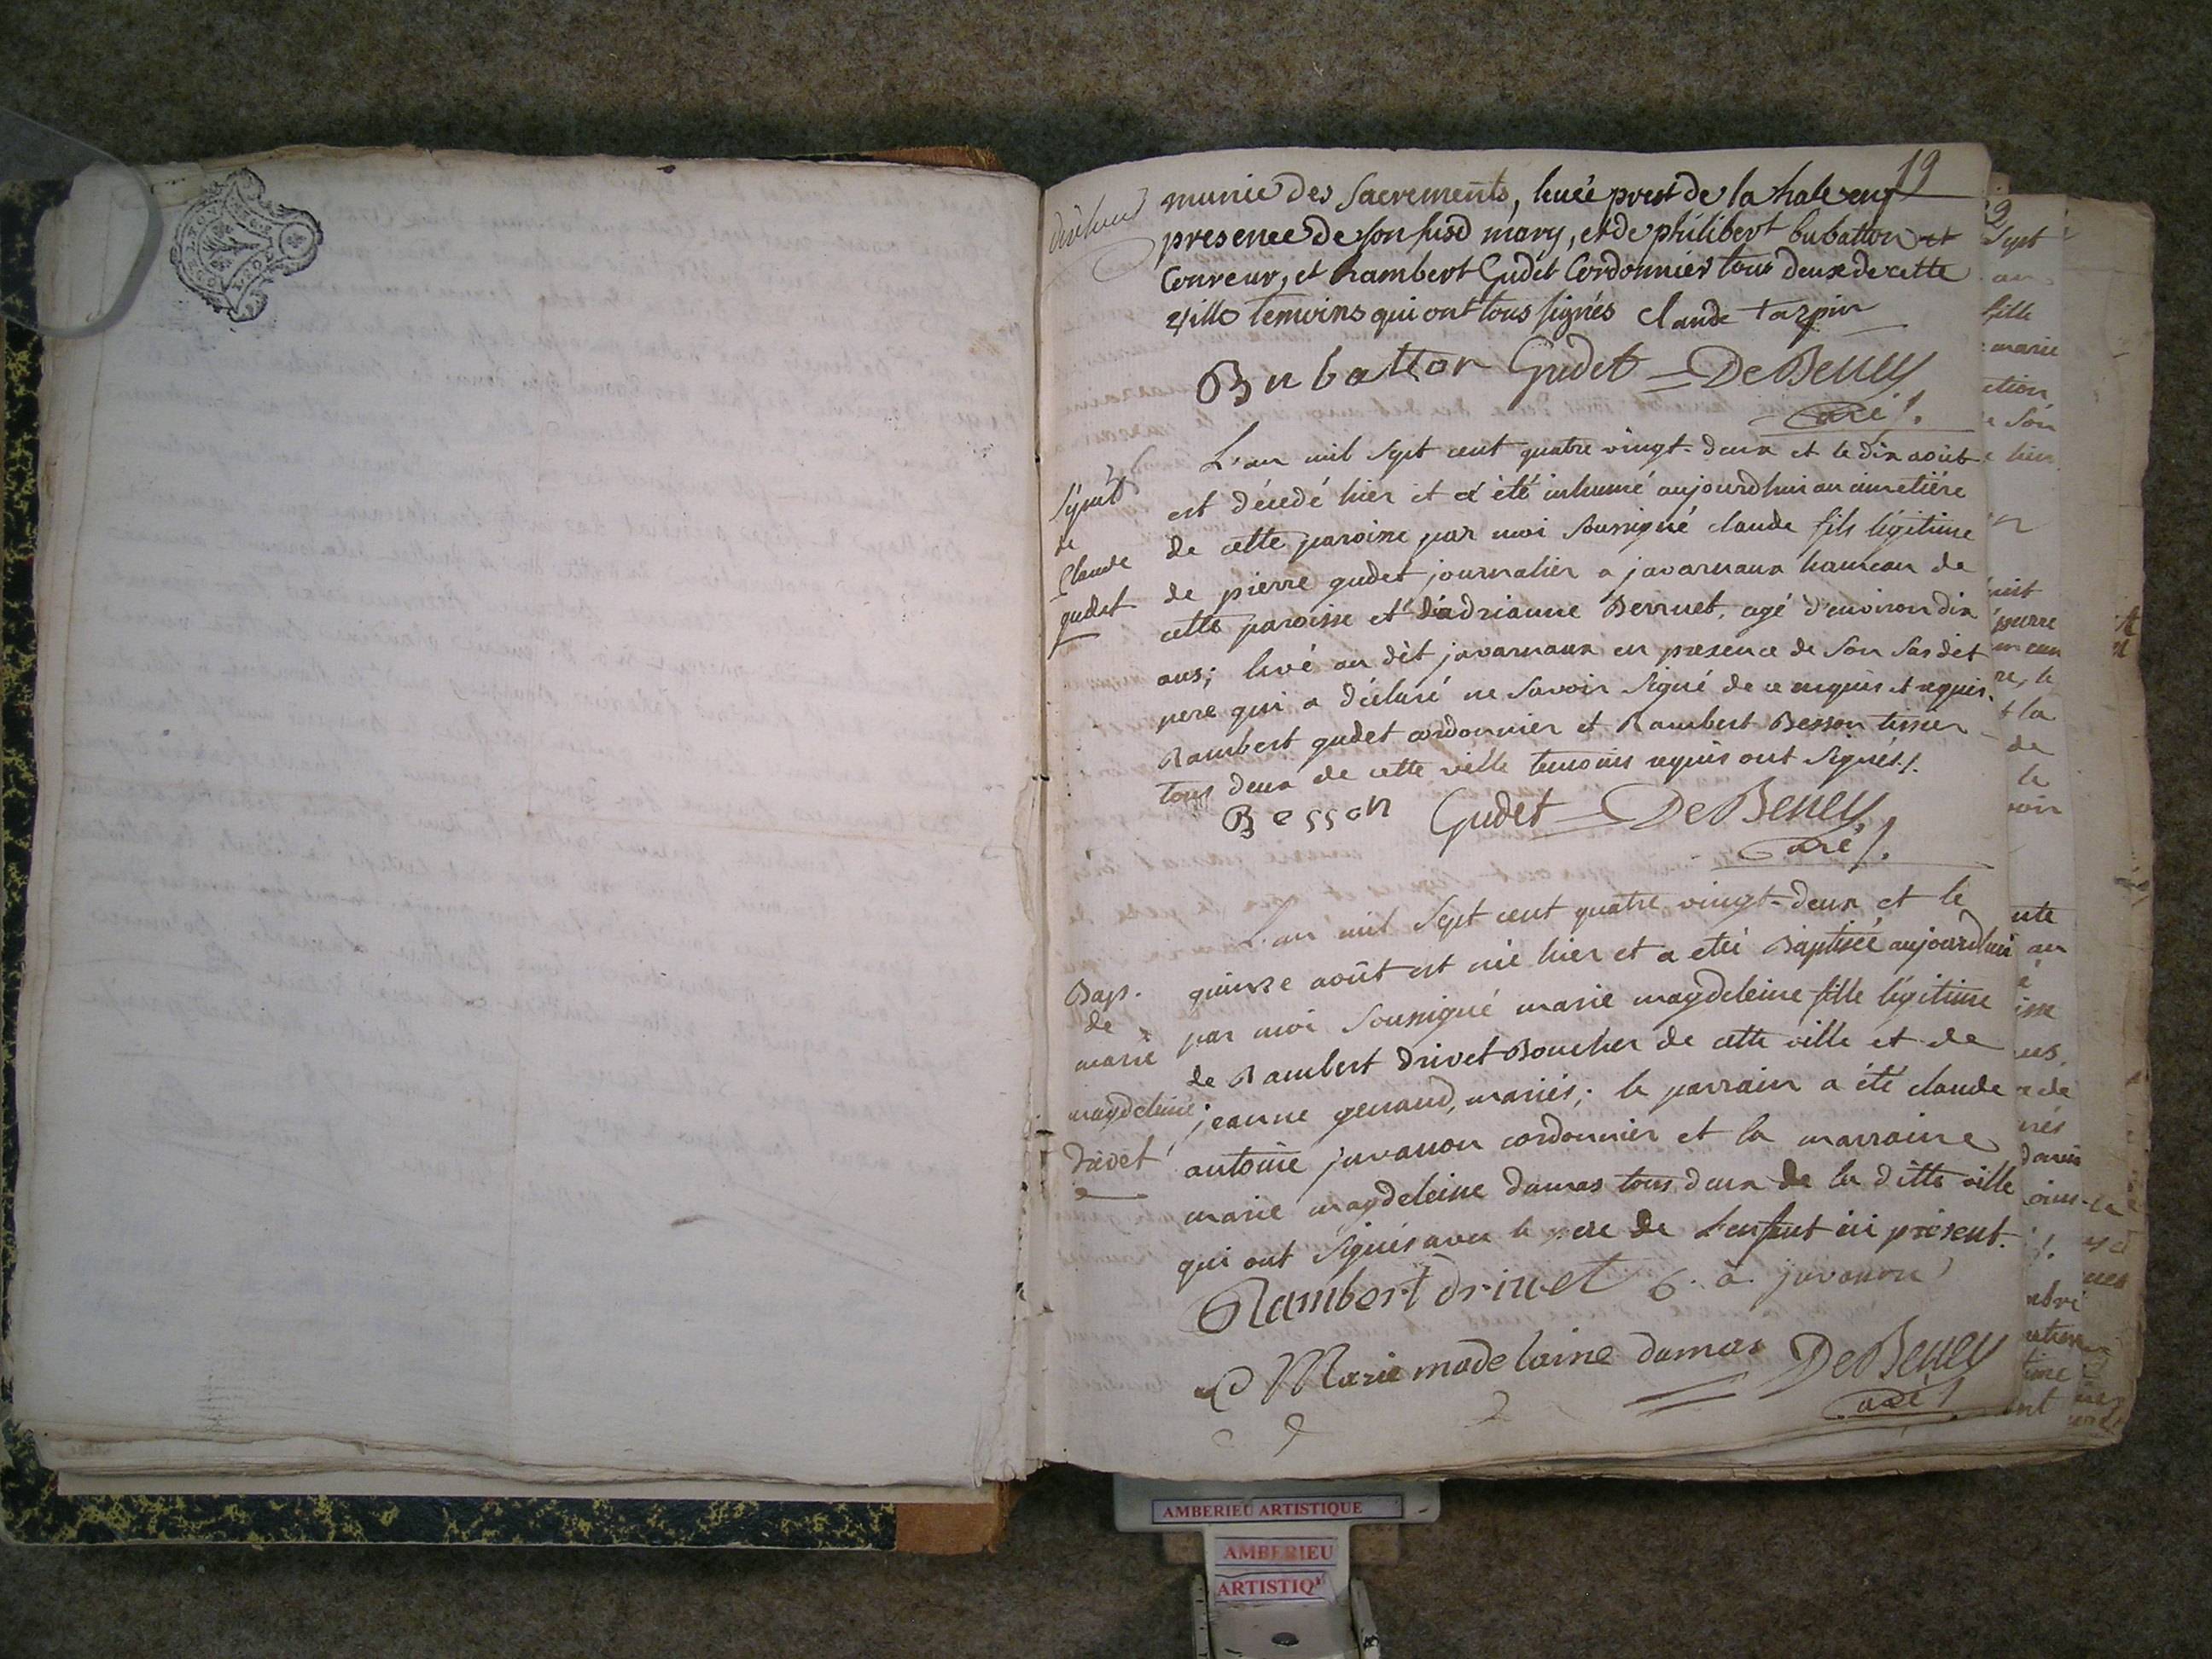 19
munie des Sacrements, levée prest de la hale en
presence de son susd mary, et de philibert bubatton et
Couvreur, et Rambert Gudet Cordonnier tous deux de cette
ville temoins qui ont tous signés claude tarpin
Bubatton Gudet DeBeney
Curé
L'an mil sept cent quatre vingt-deux et le dix août
est décedé hier et a été inhumé aujourdhui au cimetiére
de cette paroisse par moi soussigné claude fils légitime
de pierre gudet journalier a javarnaux hameau de
cette paroisse et d'adrianne Berruet, agé d'environ dix
ans; levé au dét javarnaux en presence de son susdet
pere qui a déclaré ne savoir signé de ce enquis et requis.
Rambert gudet cordonnier et Rambert Besson tissier
tous deux de cette ville temoins requis ont signés.
Sépult
de
Claude
gudet
Besson Gudet DeBeney
Curé
L'an mil sept cent quatre vingt-deux et le
quinze août est née hier et a etéé Baptisée aujourdhui
par moi soussigné marie magdeleine fille légitime
de Rambert Drivet Boucher de cette ville et de
jeanne genaud, mariés; le parrain a été claude
antoine juvanon cordonnier et la marraine
marie magdeleine damas tous deux de la ditte ville
qui ont signés avec le pere de L'enfant ici présent.
Bap.
de
marie
magdeleine
Drivet
Rambert drivet C. a. juvanon
Marie madelaine damas DeBeney
Curé
AMBERIEU ARTISTIQUE
AMBERIEU
ARTISTIQ